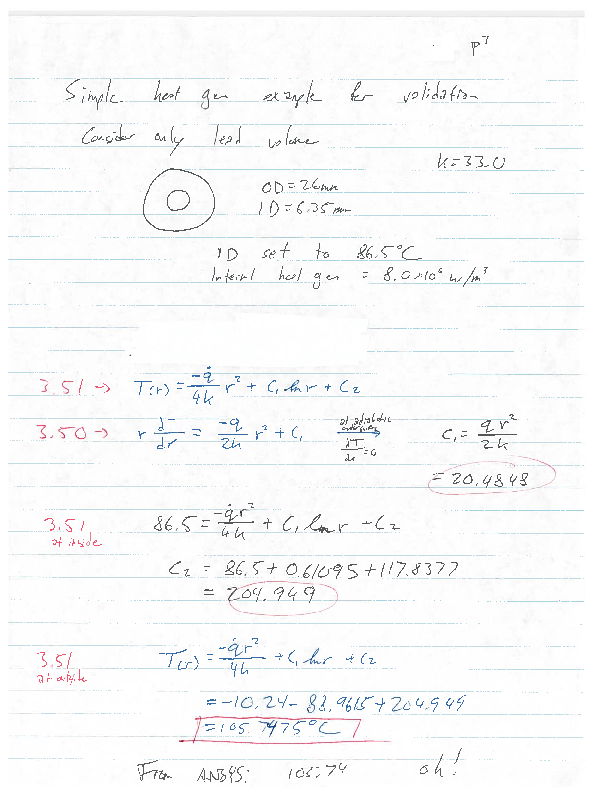 p7
Simple heat gen example for validation
Consider only lead volume
k=33.0
OD=26mm
ID=6.35mm
ID set to 86.5°C
Internal heat gen = 8.0×10⁶ w/m³
3.51 → T(r) = -q̇/4k r² + C₁ ln r + C₂
3.50 → r dT/dr = -q/2k r² + C₁ at adiabatic dT/dr = 0 C₁ = q r²/2k
= 20.4848
3.51 at inside 86.5 = -q̇r²/4k + C₁ ln r + C₂
C₂ = 86.5 + 0.61095 + 117.8377
= 204.949
3.51 at outside T(r) = -q̇r²/4k + C₁ ln r + C₂
= -10.24 - 88.9615 + 204.949
= 105.7475°C
From ANSYS: 105.74 ok!